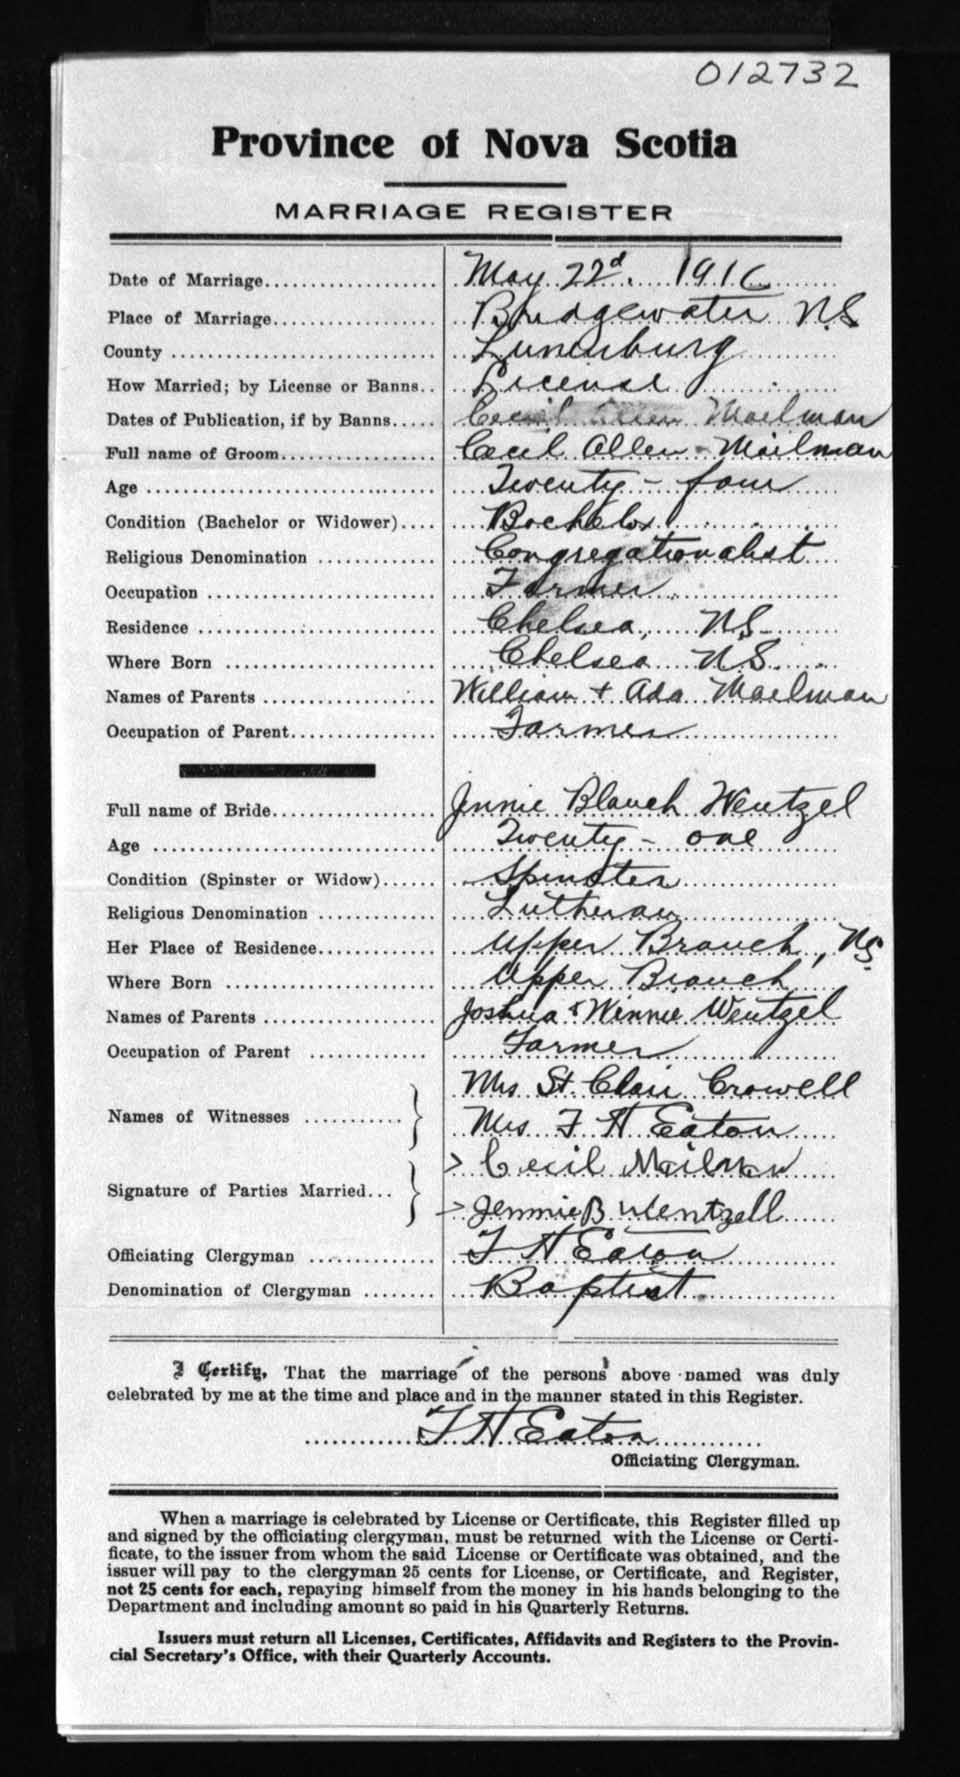 012732
Province of Nova Scotia
MARRIAGE REGISTER
Date of Marriage.................... May 22d. 1916
Place of Marriage................... Bridgewater NS
County ............................ Lunenburg
How Married; by License or Banns.. License
Dates of Publication, if by Banns..... Cecil Allen Mailman
Full name of Groom.................. Cecil Allen Mailman
Age ............................... Twenty-four
Condition (Bachelor or Widower).... Bachelor
Religious Denomination ............. Congregationalist
Occupation ......................... Farmer
Residence .......................... Chelsea, NS
Where Born ........................ Chelsea NS
Names of Parents ................... William + Ada Mailman
Occupation of Parent................ Farmer
Full name of Bride................... Jennie Blanch Wentzel
Age ............................... Twenty-one
Condition (Spinster or Widow)...... Spinster
Religious Denomination ............. Lutheran
Her Place of Residence............. Upper Branch, NS
Where Born ........................ Upper Branch
Names of Parents ................... Joshua & Winnie Wentzel
Occupation of Parent ............. Farmer
Mrs St. Clair Crowell
Names of Witnesses ........... } Mrs F H Eaton
> Cecil Mailman
Signature of Parties Married... } > Jennie B Wentzell
Officiating Clergyman .............. F H Eaton
Denomination of Clergyman ........ Baptist
I Certify, That the marriage of the persons above named was duly
celebrated by me at the time and place and in the manner stated in this Register.
F H Eaton
Officiating Clergyman.
When a marriage is celebrated by License or Certificate, this Register filled up
and signed by the officiating clergyman, must be returned with the License or Certi-
ficate, to the issuer from whom the said License or Certificate was obtained, and the
issuer will pay to the clergyman 25 cents for License, or Certificate, and Register,
not 25 cents for each, repaying himself from the money in his hands belonging to the
Department and including amount so paid in his Quarterly Returns.
Issuers must return all Licenses, Certificates, Affidavits and Registers to the Provin-
cial Secretary's Office, with their Quarterly Accounts.